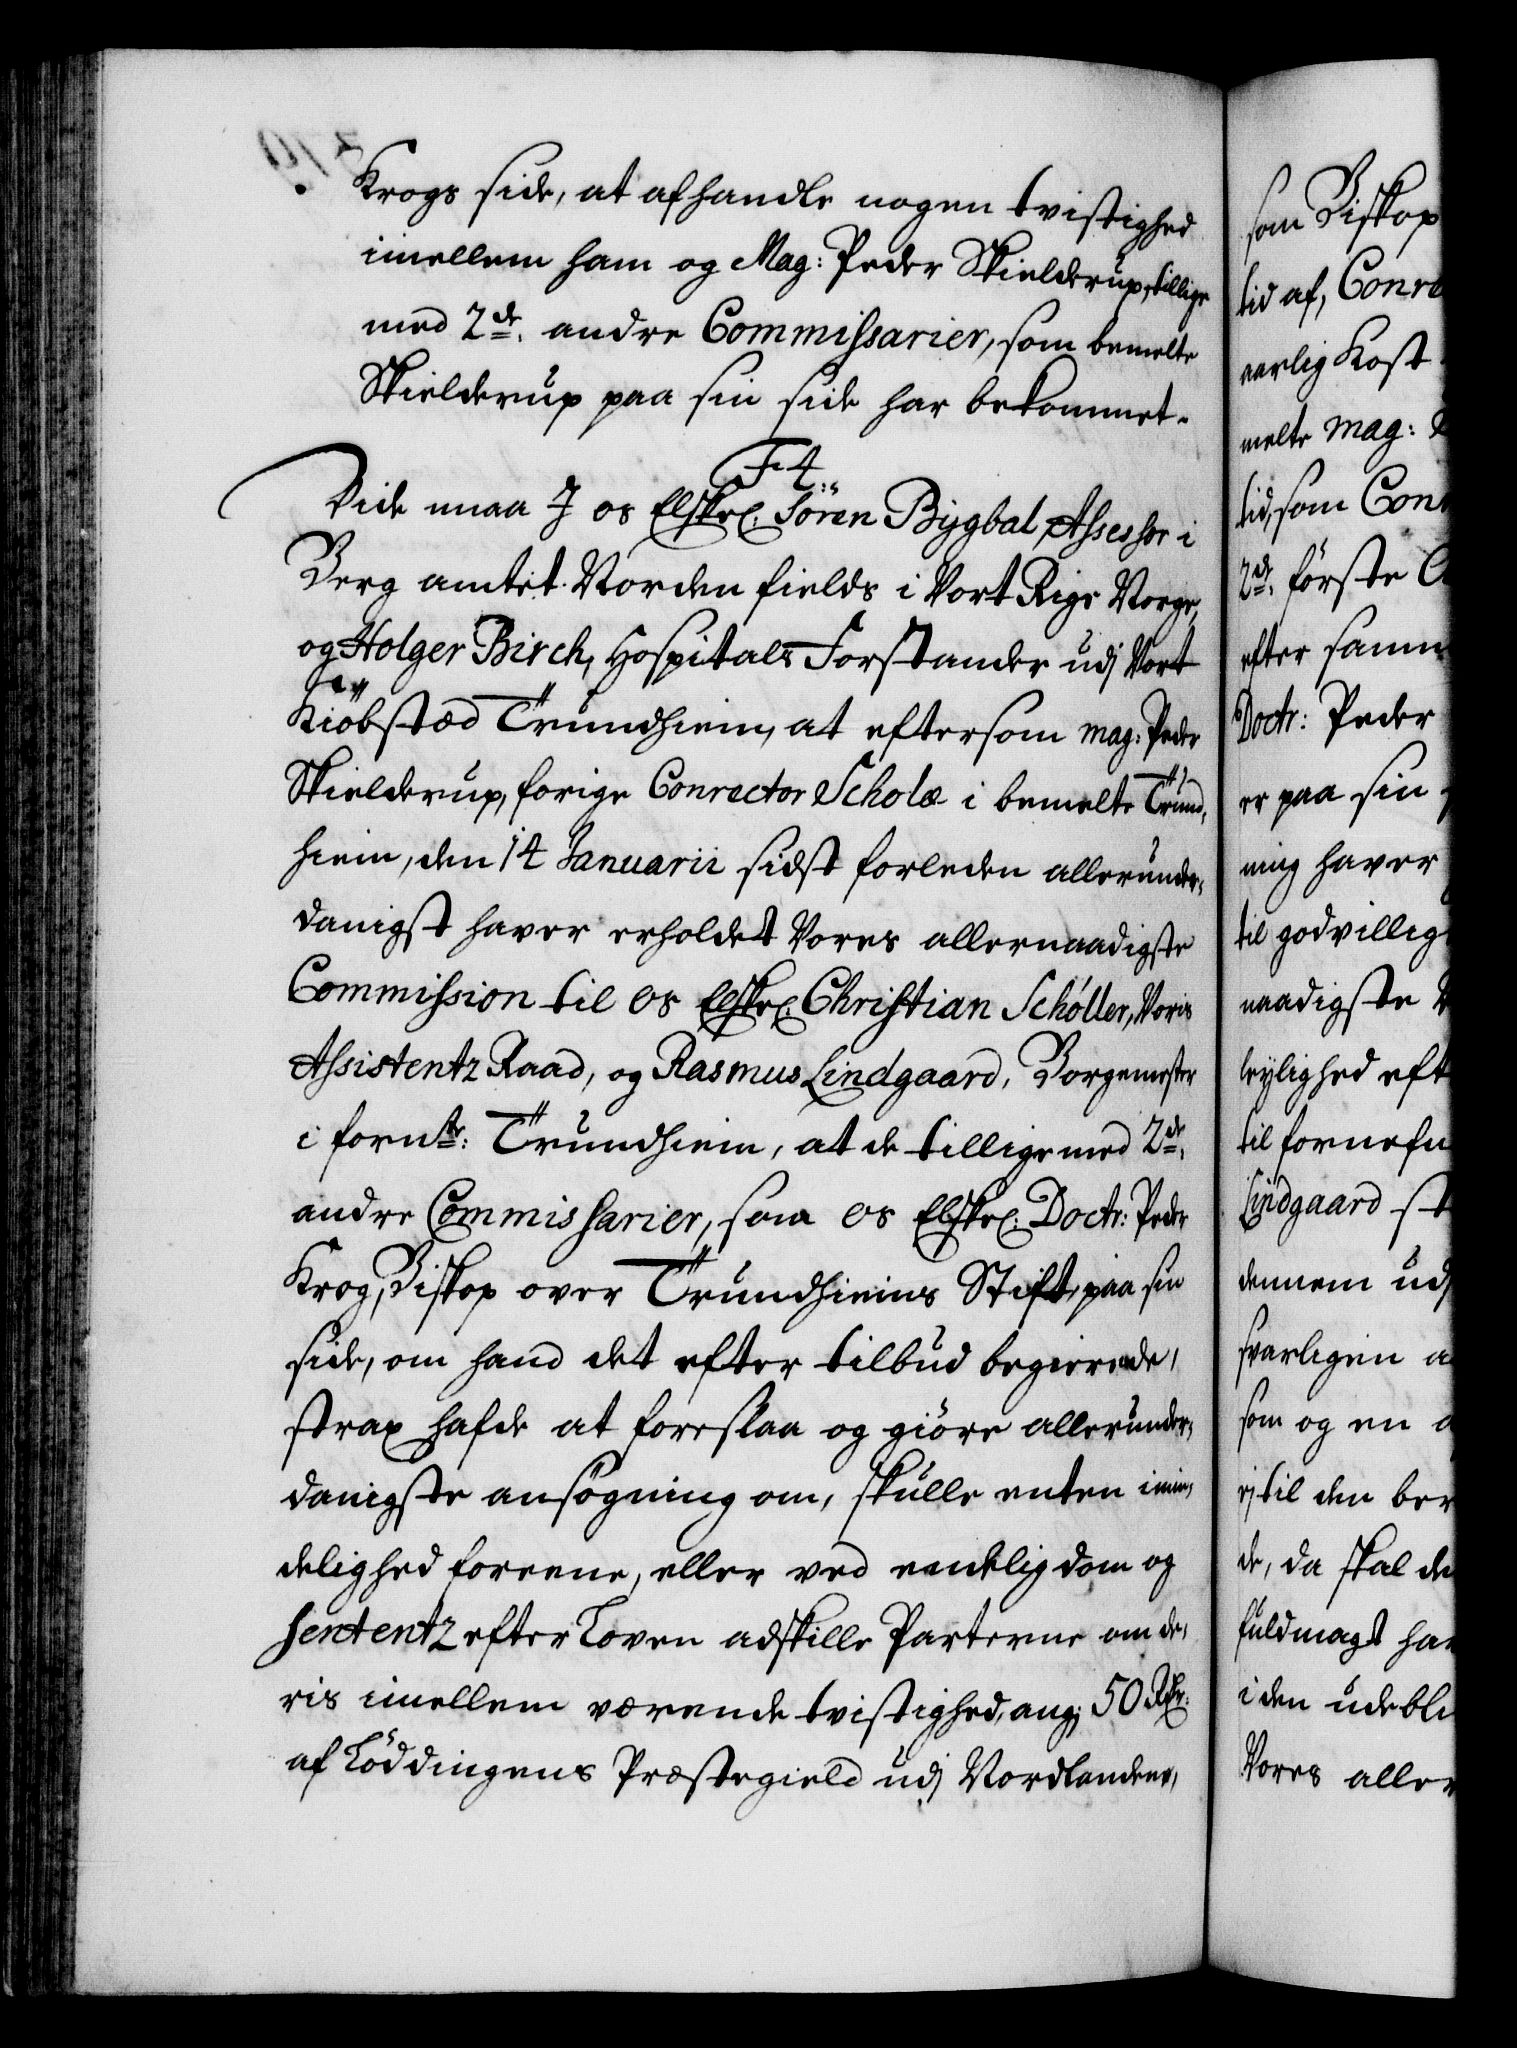 Krogs side, at afhandle nogen tvistighed
imellem ham og Mag: Peder Skielderup, tillige
med 2de. andre Commissarier, som bemelte
Skielderup paa sin side har bekommet.
F4.
Vide maa J os Elskel. Sören Bygbal, Assessor i
Berg amtet Norden fields i Vort Rige Norge,
og Holger Birch, Hospitals Forstander udj Vort
Kiöbstæd Trundhiem, at eftersom mag: Peder
Skielderup, forige Conrector Scholæ i bemelte Trund,
hiem, den 14 Januarii sidst forleden allerunder,
danigst haver erholdet Vores allernaadigste
Commission til os Elskel. Christian Schöller, Voris
Assistentz Raad, og Rasmus Lindgaard, Borgemester
i fornte: Trundhiem, at de tillige med 2de.
andre Commissarier, som os Elskel. Doctr: Peder
Krog, Biskop over Trundhiems Stift, paa sin
side, om hand det efter tilbud begierede,
strax hafde at foreslaa og giöre allerunder,
danigste ansögning om, skulle enten i min,
delighed foreene, eller ved endelig dom og
sententz efter Loven adskille Parterne om de,
ris imellem værende tvistighed, ang: 50 Rdlr:
af Löddingens Præstegield udj Nordlandene,
som Biskop
tid af, Conre
aarlig Kost
melte mag:
tid, som Con
2de. förste
efter samm
Doctr: Peder
er paa sin
ning haver
til godvillig
naadigste
leylighed eft
til fornefn
Lindgaard st
dennem udj
svarligen a
som og en
ej til den ber
de, da skal de
fuldmagt ha
i den udebli
Vores aller